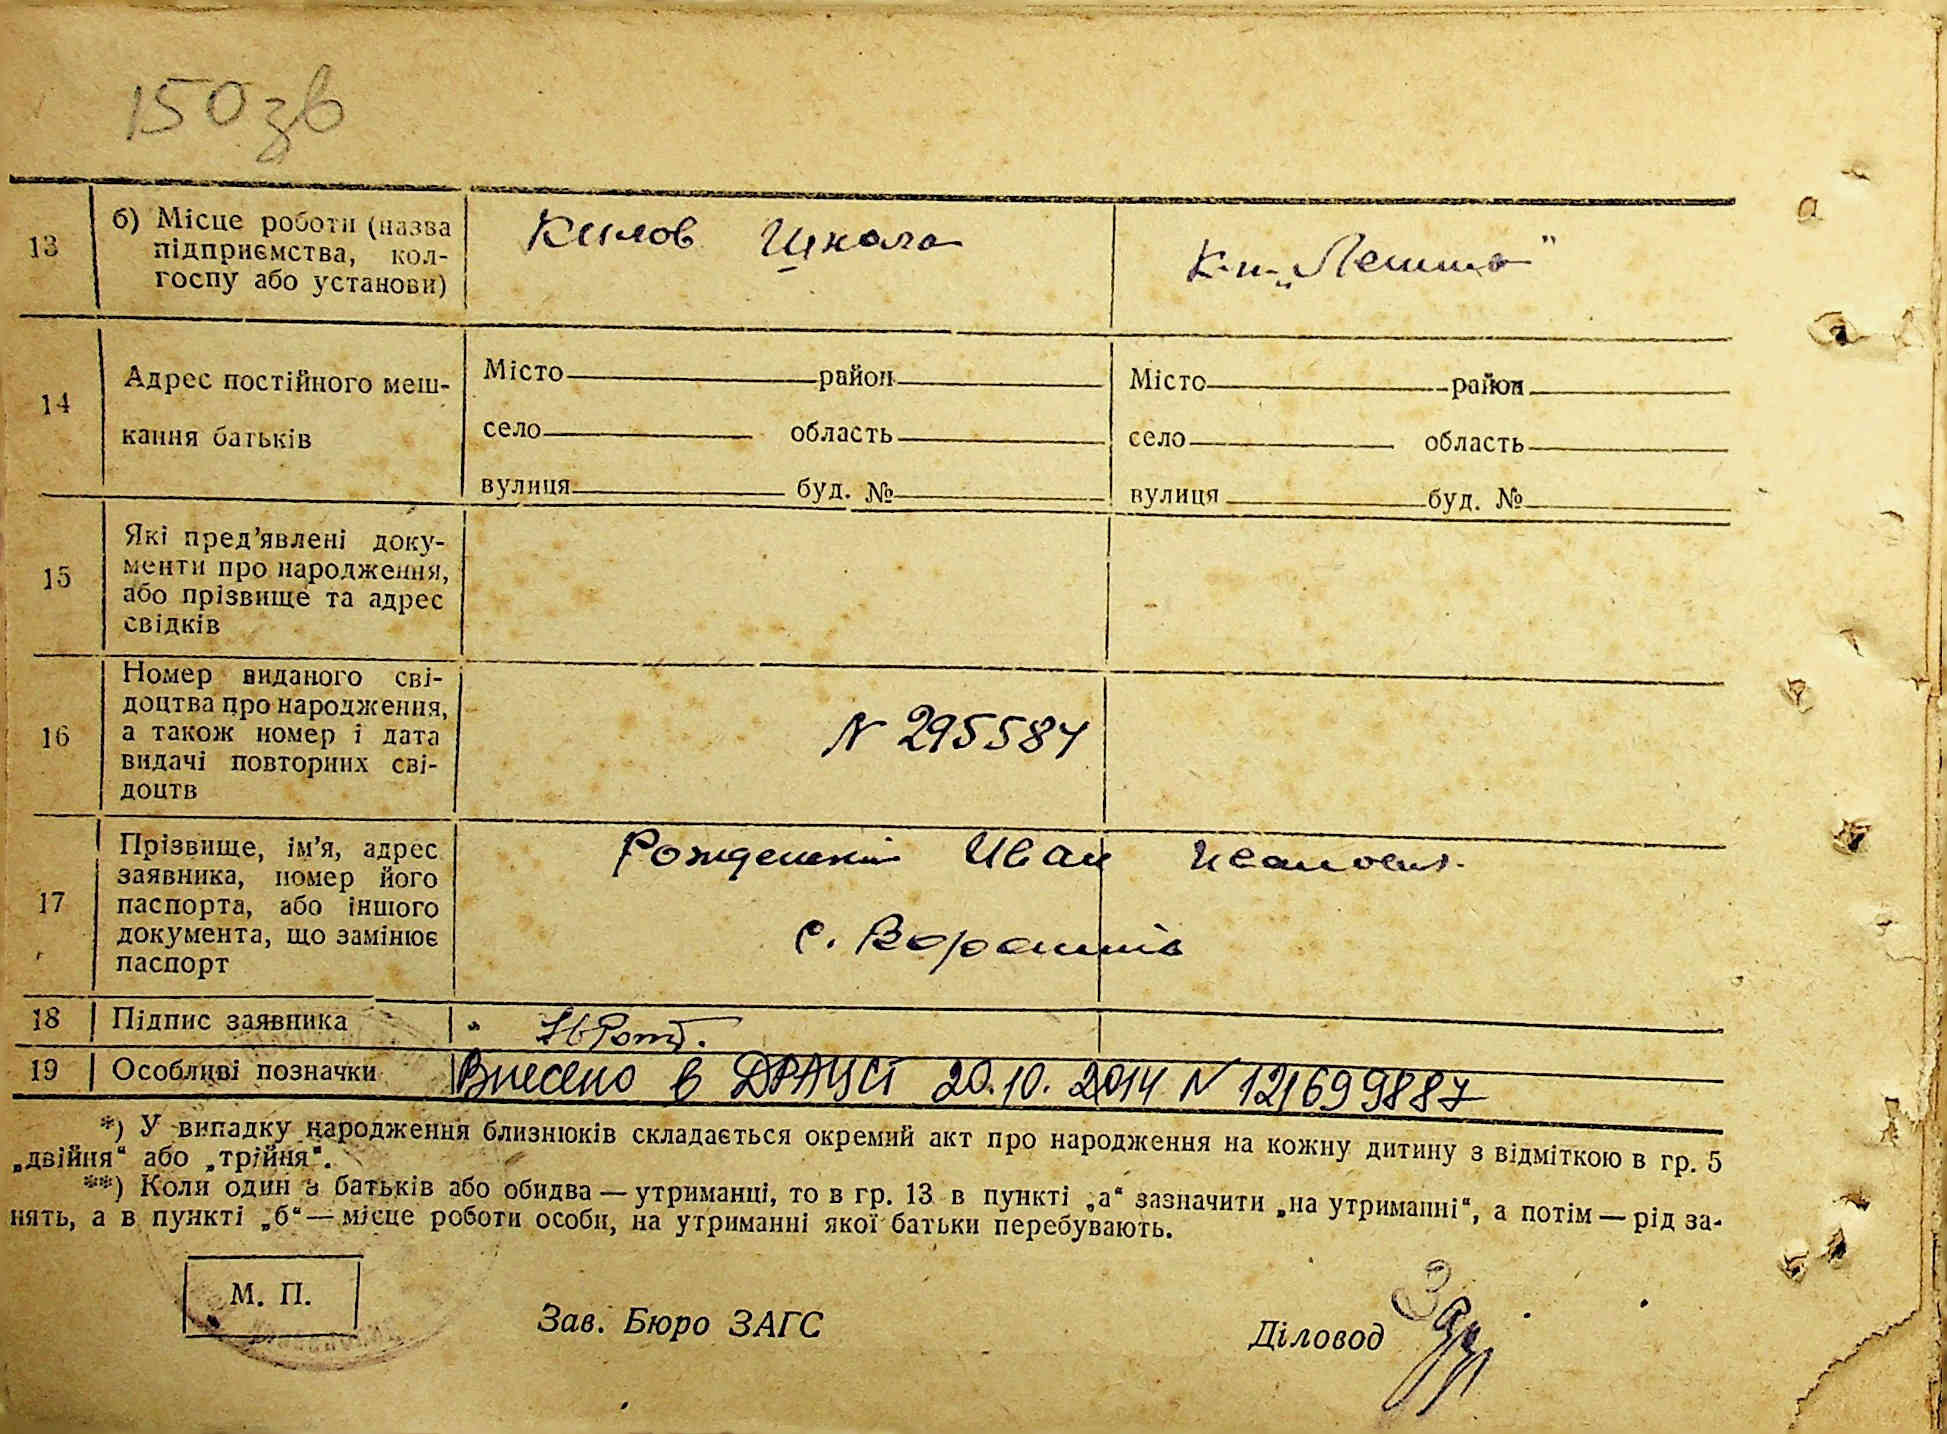 150зв
13
б) Місце роботи (назва
підприємства, кол-
госпу або установи)
Школа
14
Адрес постійного меш-
кання батьків
Місто район
село область
вулиця буд. №
Місто район
село область
вулиця буд. №
15
Які пред’явлені доку-
менти про народження,
або прізвище та адрес
свідків
16
Номер виданого сві-
доцтва про народження,
а також номер і дата
видачі повторних сві-
доцтв
N 295584
17
Прізвище, ім’я, адрес
заявника, номер його
паспорта, або іншого
документа, що замінює
паспорт
Иван Иванович
с.
18
Підпис заявника
19
Особливі позначки
Внесено в ДРАЦСГ 20.10.2014 N 121699887
*) У випадку народження близнюків складається окремий акт про народження на кожну дитину з відміткою в гр. 5
„двійня“ або „трійня“.
**) Коли один з батьків або обидва — утриманці, то в гр. 13 в пункті „а“ зазначити „на утриманні“, а потім — рід за-
нять, а в пункті „б“ — місце роботи особи, на утриманні якої батьки перебувають.
М. П.
Зав. Бюро ЗАГС
Діловод